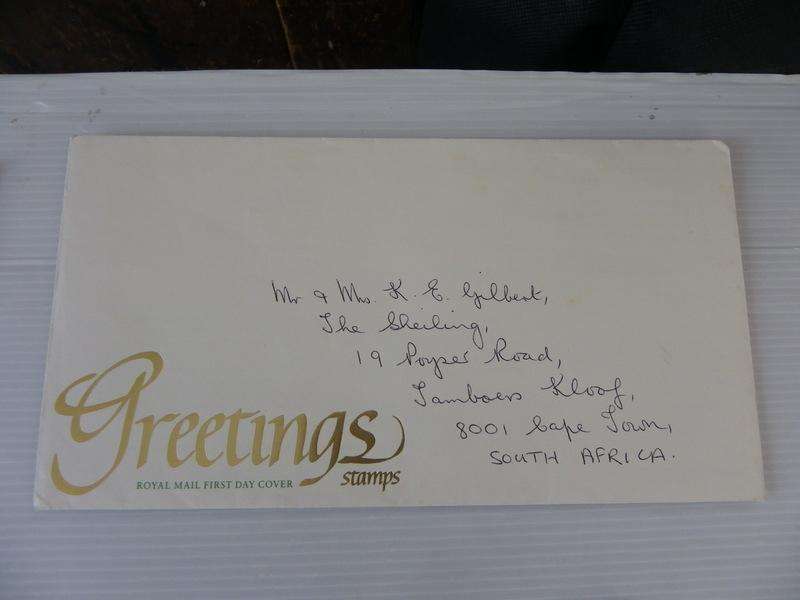 Mr & Mrs. K. E. Gilbert,
The Sheiling,
19 Poyser Road,
Tamboers Kloof,
8001 Cape Town,
SOUTH AFRICA.
Greetings
stamps
ROYAL MAIL FIRST DAY COVER